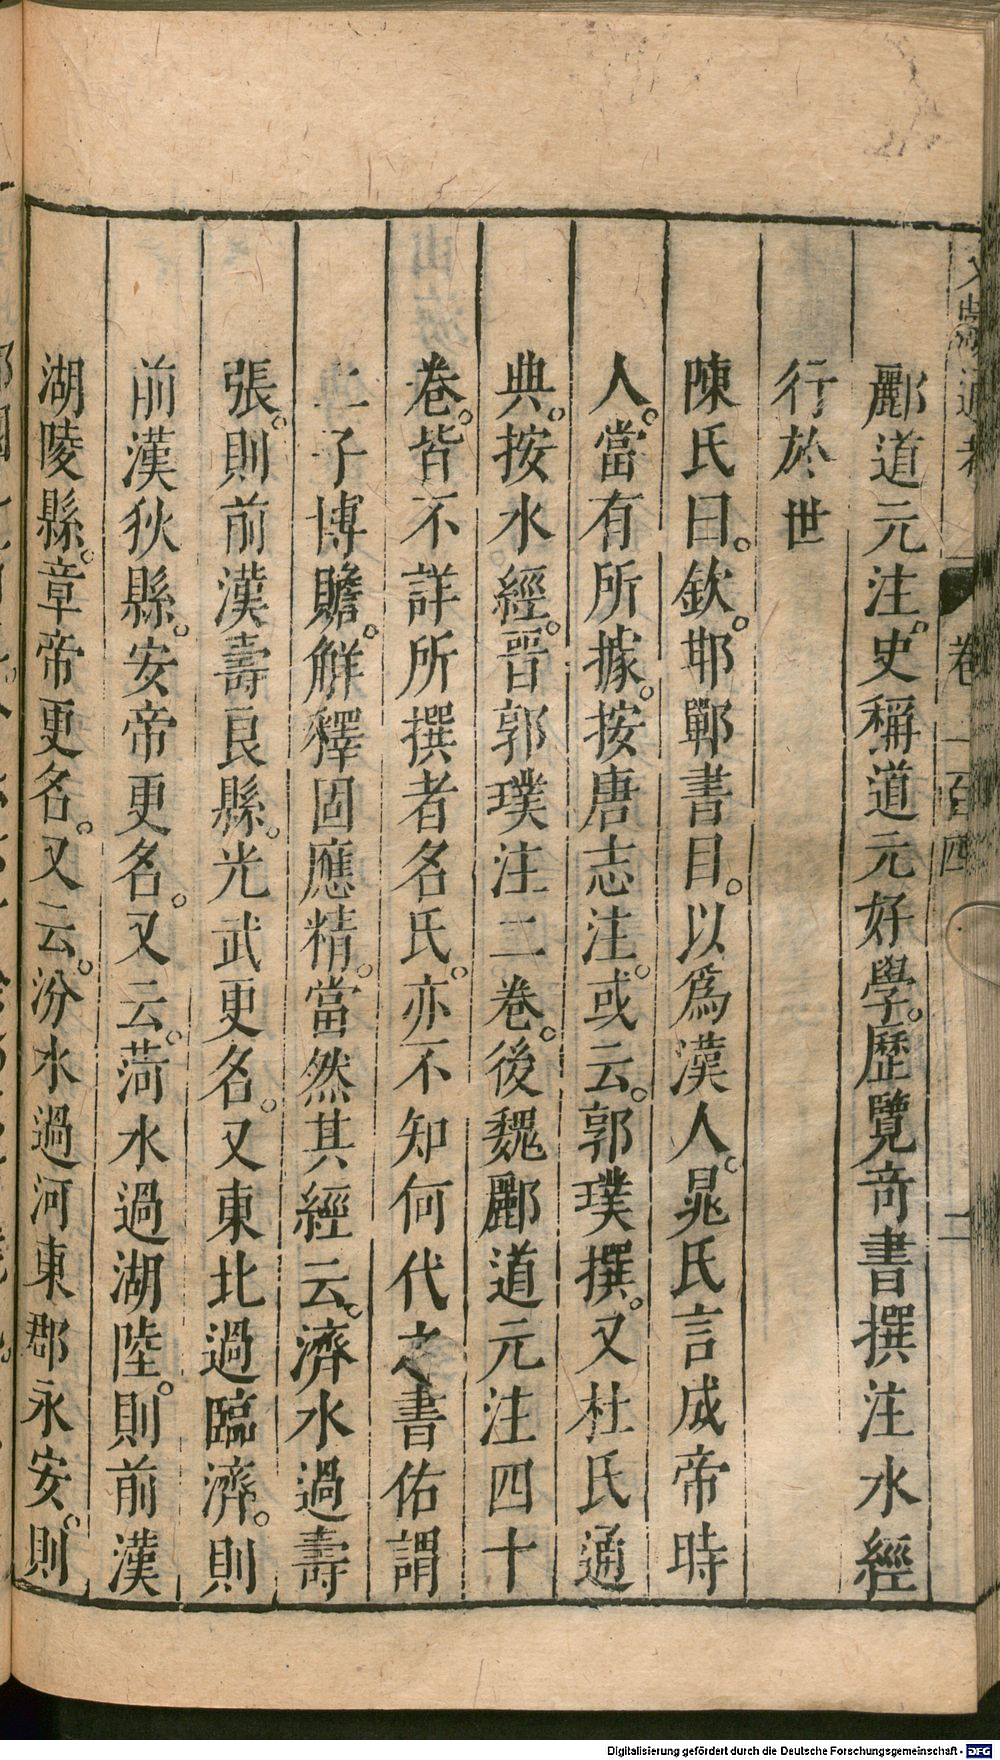 卷二百四
二
酈道元注史稱道元好學歷覽奇書撰注水經
行於世
陳氏曰欽邯鄲書目以爲漢人晁氏言成帝時
人當有所據按唐志注或云郭璞撰又杜氏通
典按水經晉郭璞注二卷後魏酈道元注四十
卷皆不詳所撰者名氏亦不知何代之書佑謂
二子博贍解釋固應精當然其經云濟水過壽
張則前漢壽良縣光武更名又東北過臨濟則
前漢狄縣安帝更名又云菏水過湖陸則前漢
湖陵縣章帝更名又云汾水過河東郡永安則
Digitalisierung gefördert durch die Deutsche Forschungsgemeinschaft - DFG